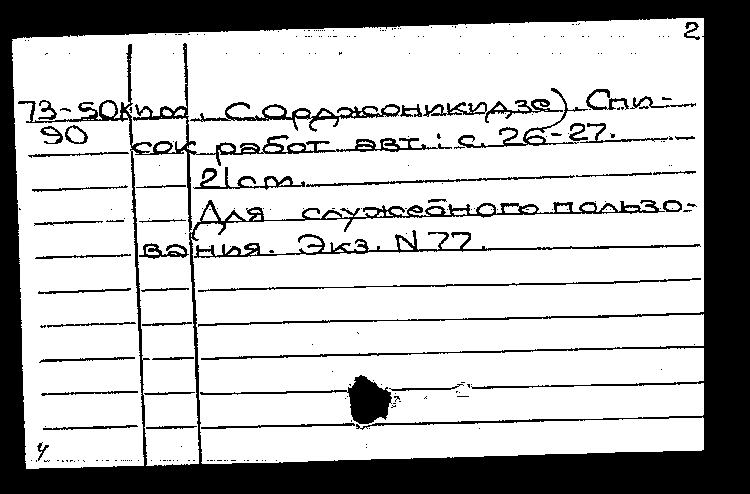 2
73-50 Кит. С. Орджоникидзе). Спи-
90 сок работ авт.: с. 26-27.
21 cm.
Для служебного пользо-
вания. Экз. N 77.